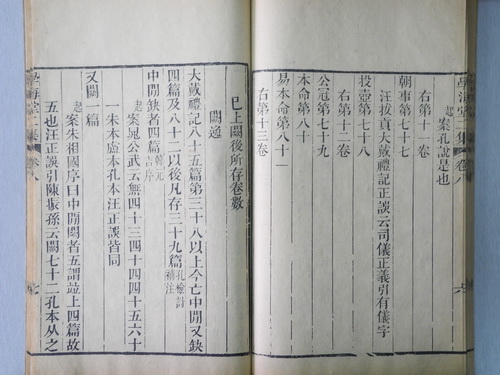 學海堂二集 卷八 六
起案孔說是也
右第十一卷
朝事第七十七
汪拔貢大戴禮記正誤云司儀正義引有儀字
投壺第七十八
右第十二卷
公冠第七十九
本命第八十
易本命第八十一
右第十三卷
已上闕後所存卷數
闕逸
大戴禮記八十五篇第三十八以上今亡中閒又缺
四篇及八十二以後凡存三十九篇孔檢討補注
中閒缺者四篇韓元吉序
起案晁公武云無四十三四十四四十五六十
一朱本盧本孔本汪正誤皆同
又闕一篇
起案朱祖國序曰中閒闕者五謂並上四篇故
五也汪正誤引陳振孫云闕七十二孔本从之
學海堂二集 卷八 七